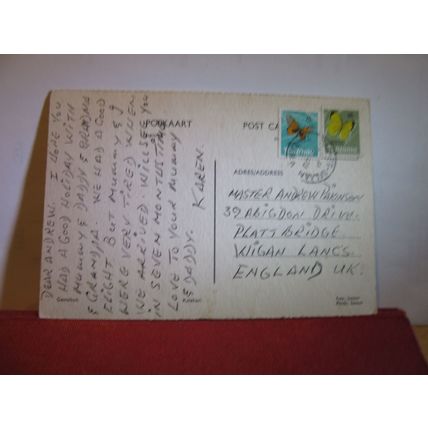 POSKAART
POST CA
DEAR ANDREW. I HOPE YOU
HAD A GOOD HOLIDAY WITH
MUMMY & DADDY & GRANDMA
& GRANDPA WE HAD A GOOD
FLIGHT BUT MUMMY & I
WERE VERY TIRED WHEN
WE ARRIVED WILL SEE YOU
IN SEVEN MONTHS TIME
LOVE TO YOUR MUMMY
& DADDY. KAREN.
ADRES/ADDRESS
MASTER ANDREW
39 ABIGDON DRIVE.
PLATT BRIDGE
WIGAN LANCS.
ENGLAND U.K.